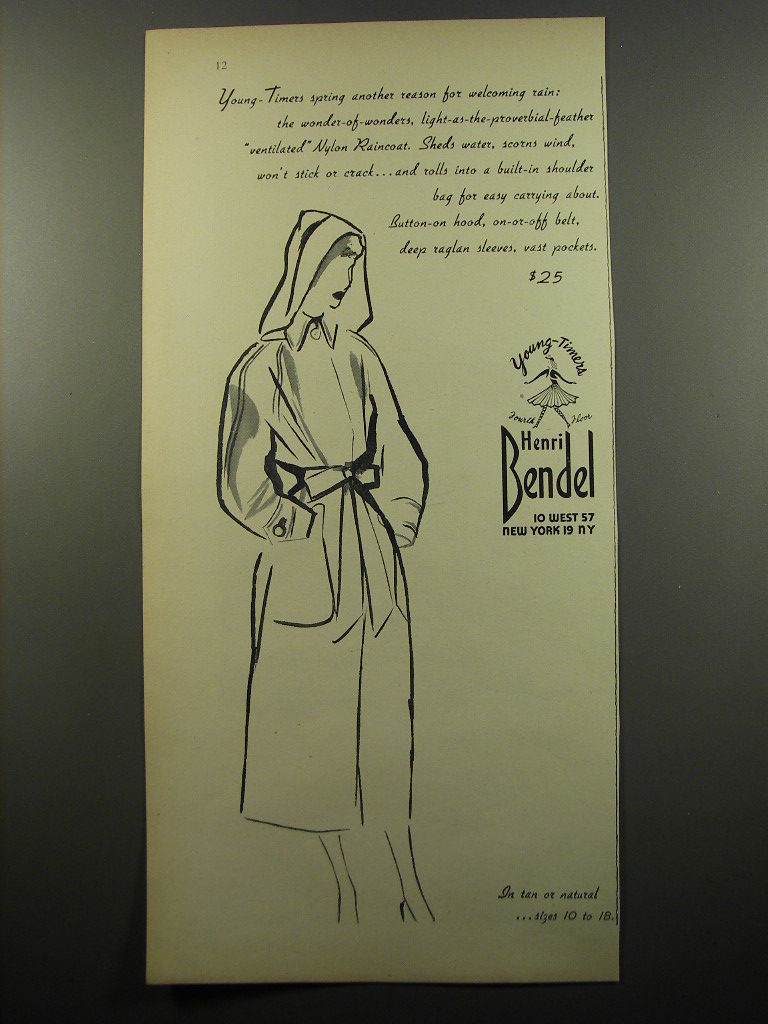 12
Young-Timers spring another reason for welcoming rain:
the wonder-of-wonders, light-as-the-proverbial-feather
"ventilated" Nylon Raincoat. Sheds water, scorns wind,
won't stick or crack...and rolls into a built-in shoulder
bag for easy carrying about.
Button-on hood, on-or-off belt,
deep raglan sleeves, vast pockets.
$25
Young-Timers
Fourth Floor
Henri
Bendel
10 WEST 57
NEW YORK 19 NY
In tan or natural
...sizes 10 to 18.